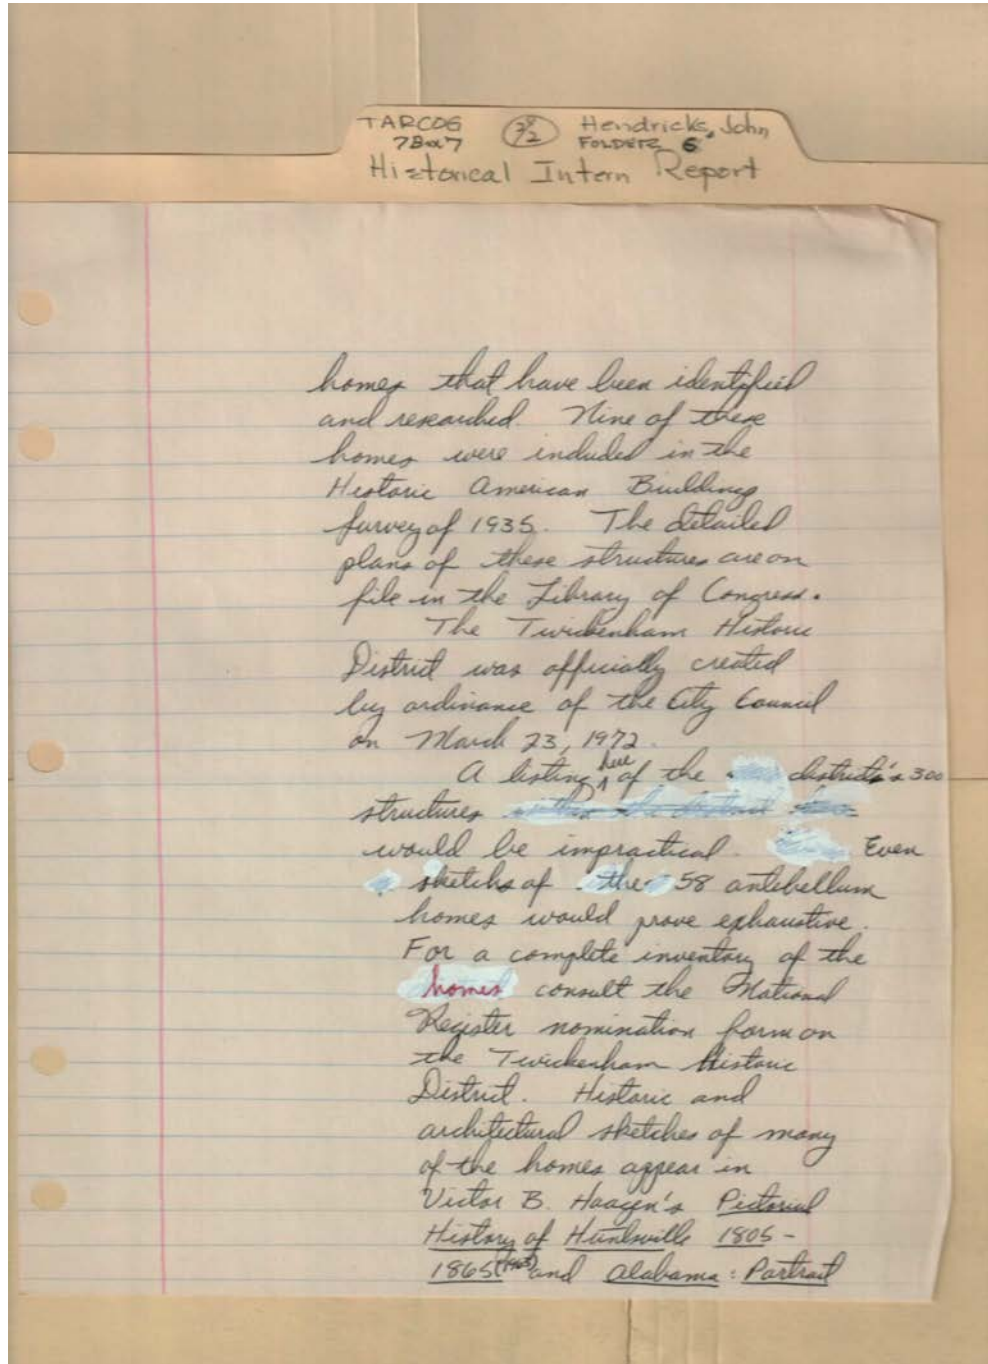 TARCOG Hendricks, John
FOLDER 6
Historical Intern Report
homes that have been identified
and researched. Nine of these
homes were included in the
Historic American Buildings
Survey of 1935. The detailed
plans of these structures are on
file in the Library of Congress.
The Twickenham Historic
District was officially created
by ordinance of the City Council
on March 23, 1972.
A listing here of the district's 300
structures
would be impractical. Even
sketchs of the 58 antebellum
homes would prove exhaustive.
For a complete inventory of the
homes consult the National
Register nomination form on
the Twickenham Historic
District. Historic and
architectural sketches of many
of the homes appear in
Victor B. Haagen's Pictorial
History of Huntsville 1805-
1865 and Alabama: Portrait